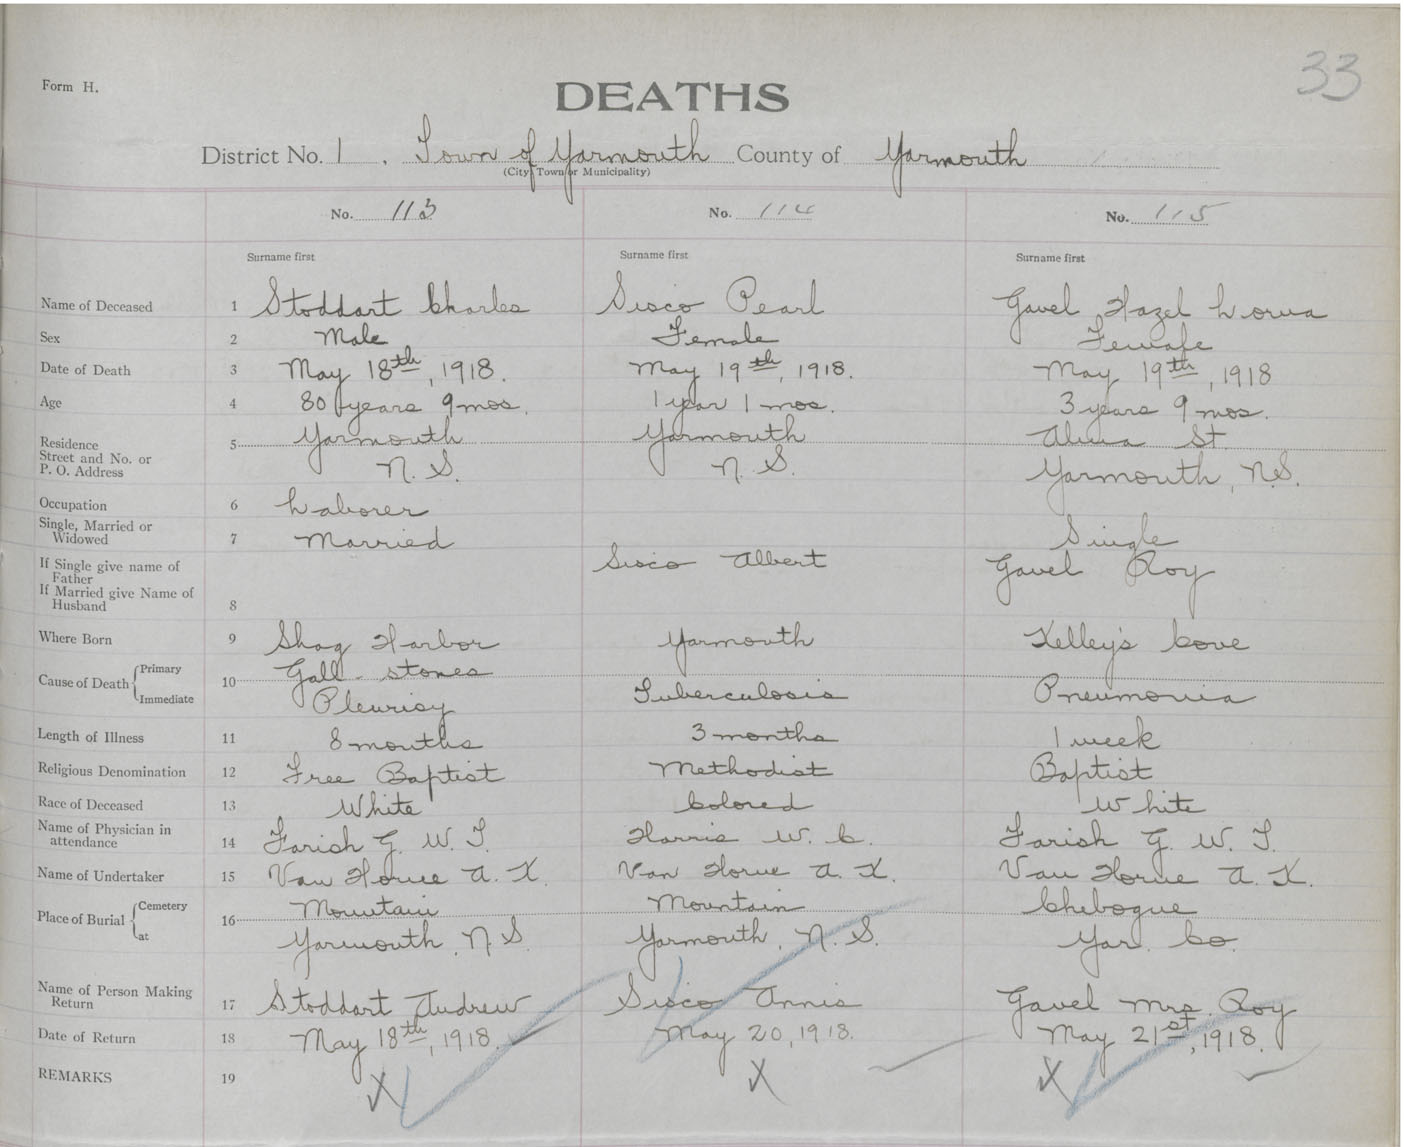 33
Form H.
DEATHS
District No. 1. Town of Yarmouth County of Yarmouth
(City, Town or Municipality)
No. 113 No. 114 No. 115
Surname first Surname first Surname first
Name of Deceased 1 Stoddart Charles Sisco Pearl Gavel Hazel Lorna
Sex 2 Male Female Female
Date of Death 3 May 18th, 1918. May 19th, 1918. May 19th, 1918
Age 4 80 years 9 mos. 1 year 1 mos. 3 years 9 mos.
Residence 5 Yarmouth Yarmouth Alma St.
Street and No. or
P. O. Address N. S. N. S. Yarmouth, N.S.
Occupation 6 Laborer
Single, Married or
Widowed 7 Married Single
If Single give name of
Father Sisco Albert Gavel Roy
If Married give Name of
Husband 8
Where Born 9 Shag Harbor Yarmouth Kelley's Cove
Cause of Death Primary 10 Gall-stones
Immediate Pleurisy Tuberculosis Pneumonia
Length of Illness 11 8 months 3 months 1 week
Religious Denomination 12 Free Baptist Methodist Baptist
Race of Deceased 13 White Colored White
Name of Physician in
attendance 14 Farish G. W. T. Harris W. C. Farish G. W. T.
Name of Undertaker 15 Van Horne A. K. Van Horne A. K. Van Horne A. K.
Place of Burial Cemetery 16 Mountain Mountain Chebogue
at Yarmouth, N.S. Yarmouth, N. S. Yar. Co.
Name of Person Making
Return 17 Stoddart Andrew Sisco Annie Gavel Mrs. Roy
Date of Return 18 May 18th, 1918. May 20, 1918. May 21st, 1918.
REMARKS 19 X X X